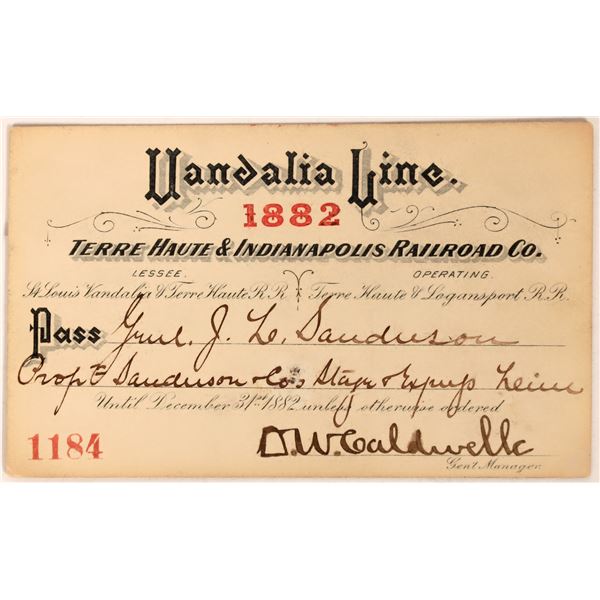 Vandalia Line.
1882
TERRE HAUTE & INDIANAPOLIS RAILROAD CO.
LESSEE. OPERATING.
St Louis Vandalia & Terre Haute R.R. Terre Haute & Logansport R.R.
Pass Genl. J. L. Sanderson
Prop Sanderson & Co's Stage & Express Line
Until December 31st 1882 unless otherwise ordered
1184 D.W. Caldwell
Gen'l Manager.